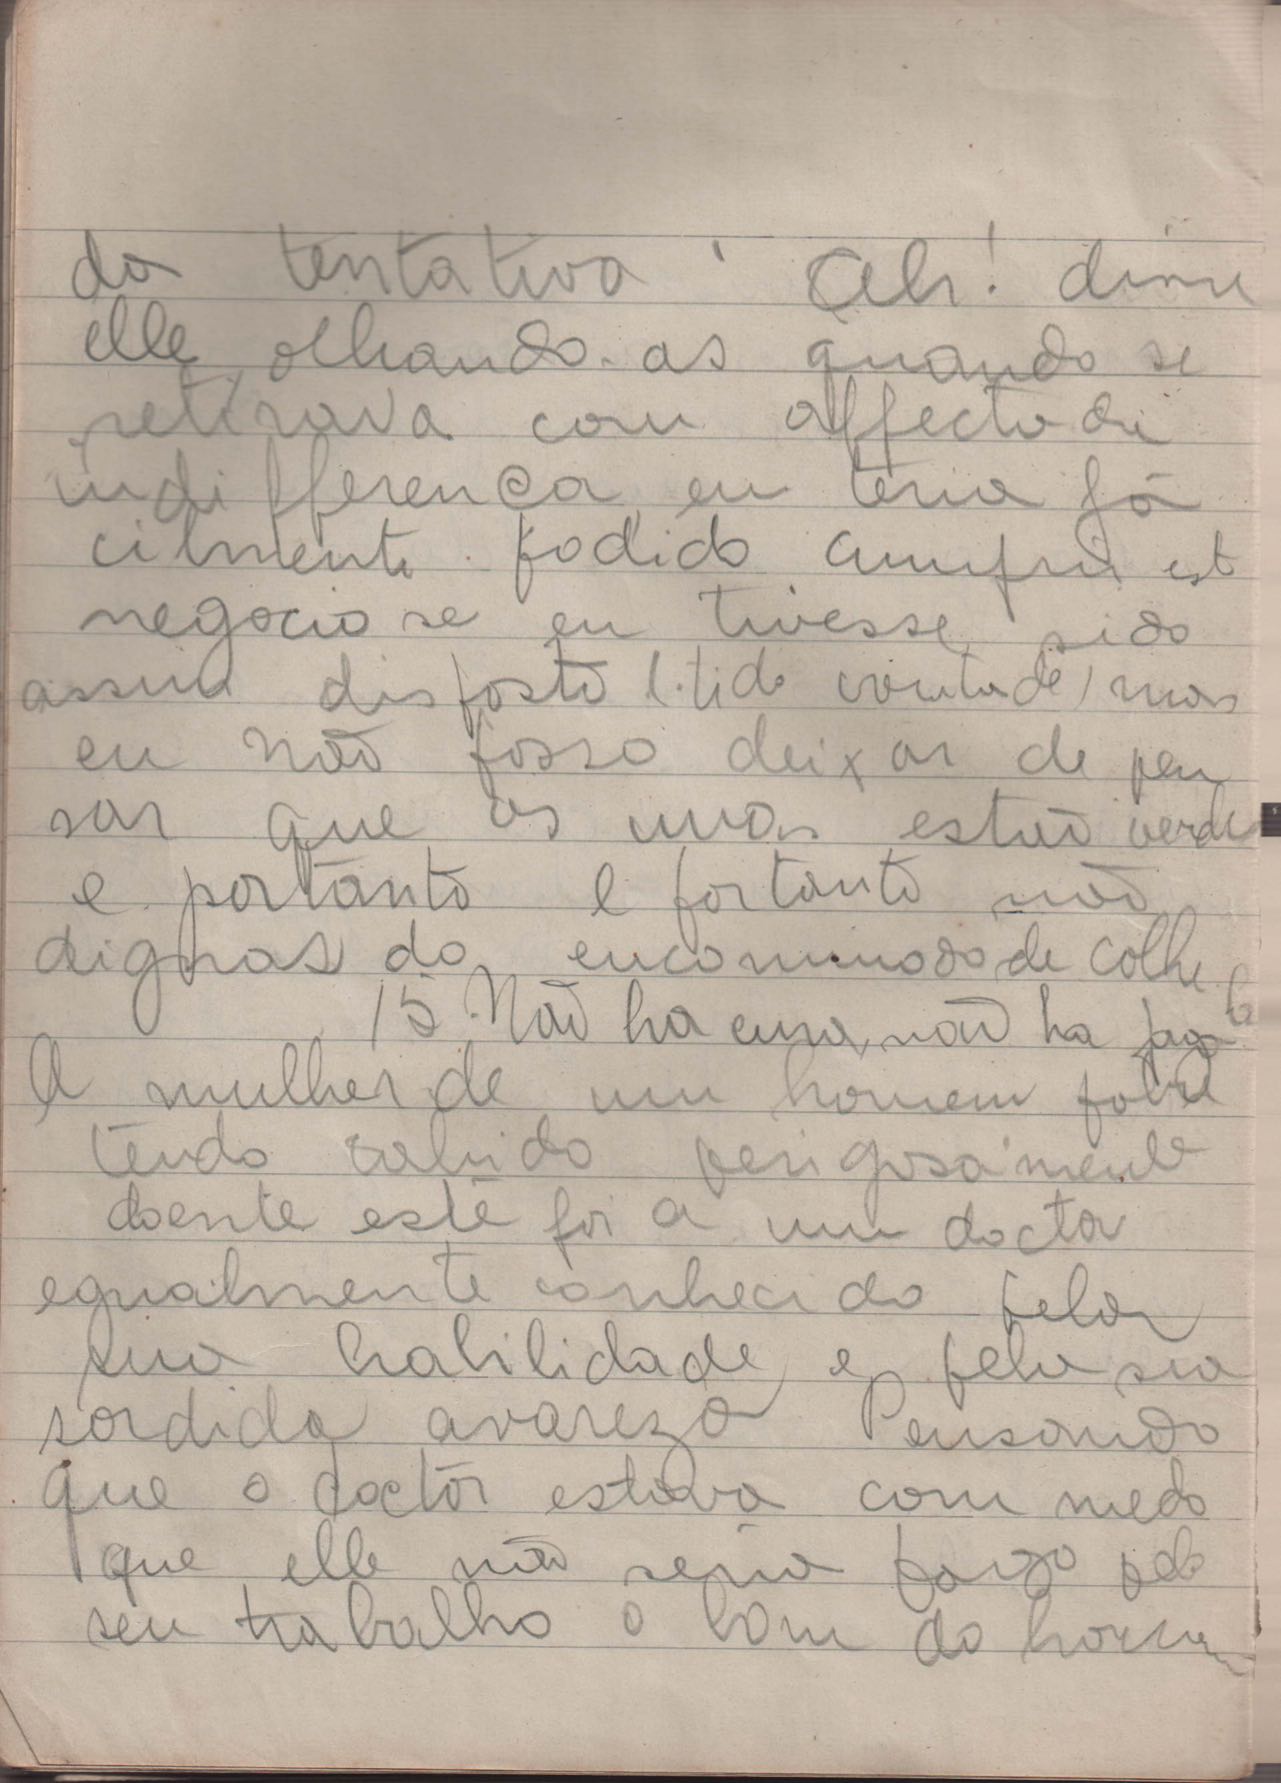 da tentativa ' Ah! disse
elle, olhando-as quando se
retirava com affectada
indifferença, eu teria fa
cilmente podido cumprir est
negocio se eu tivesse sido
assim disposto (tido vontade) mas
eu não posso deixar de pen
sar que as uvas estão verde
e portanto e portanto não
dignas do encommodo de colhe
15 Não ha cura, não ha paga
A mulher de um homem pobre
tendo cahido perigosamente
doente este foi a um doctor
egualmente conhecido pela
sua habilidade e pela sua
sordida avareza Pensando
que o doctor estava com medo
que elle não seria pago pelo
seu trabalho o bom do homem